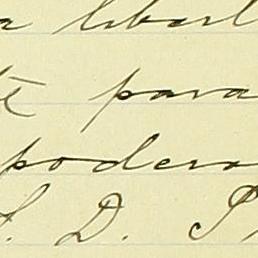 a libert
te para
podera
S. D. P